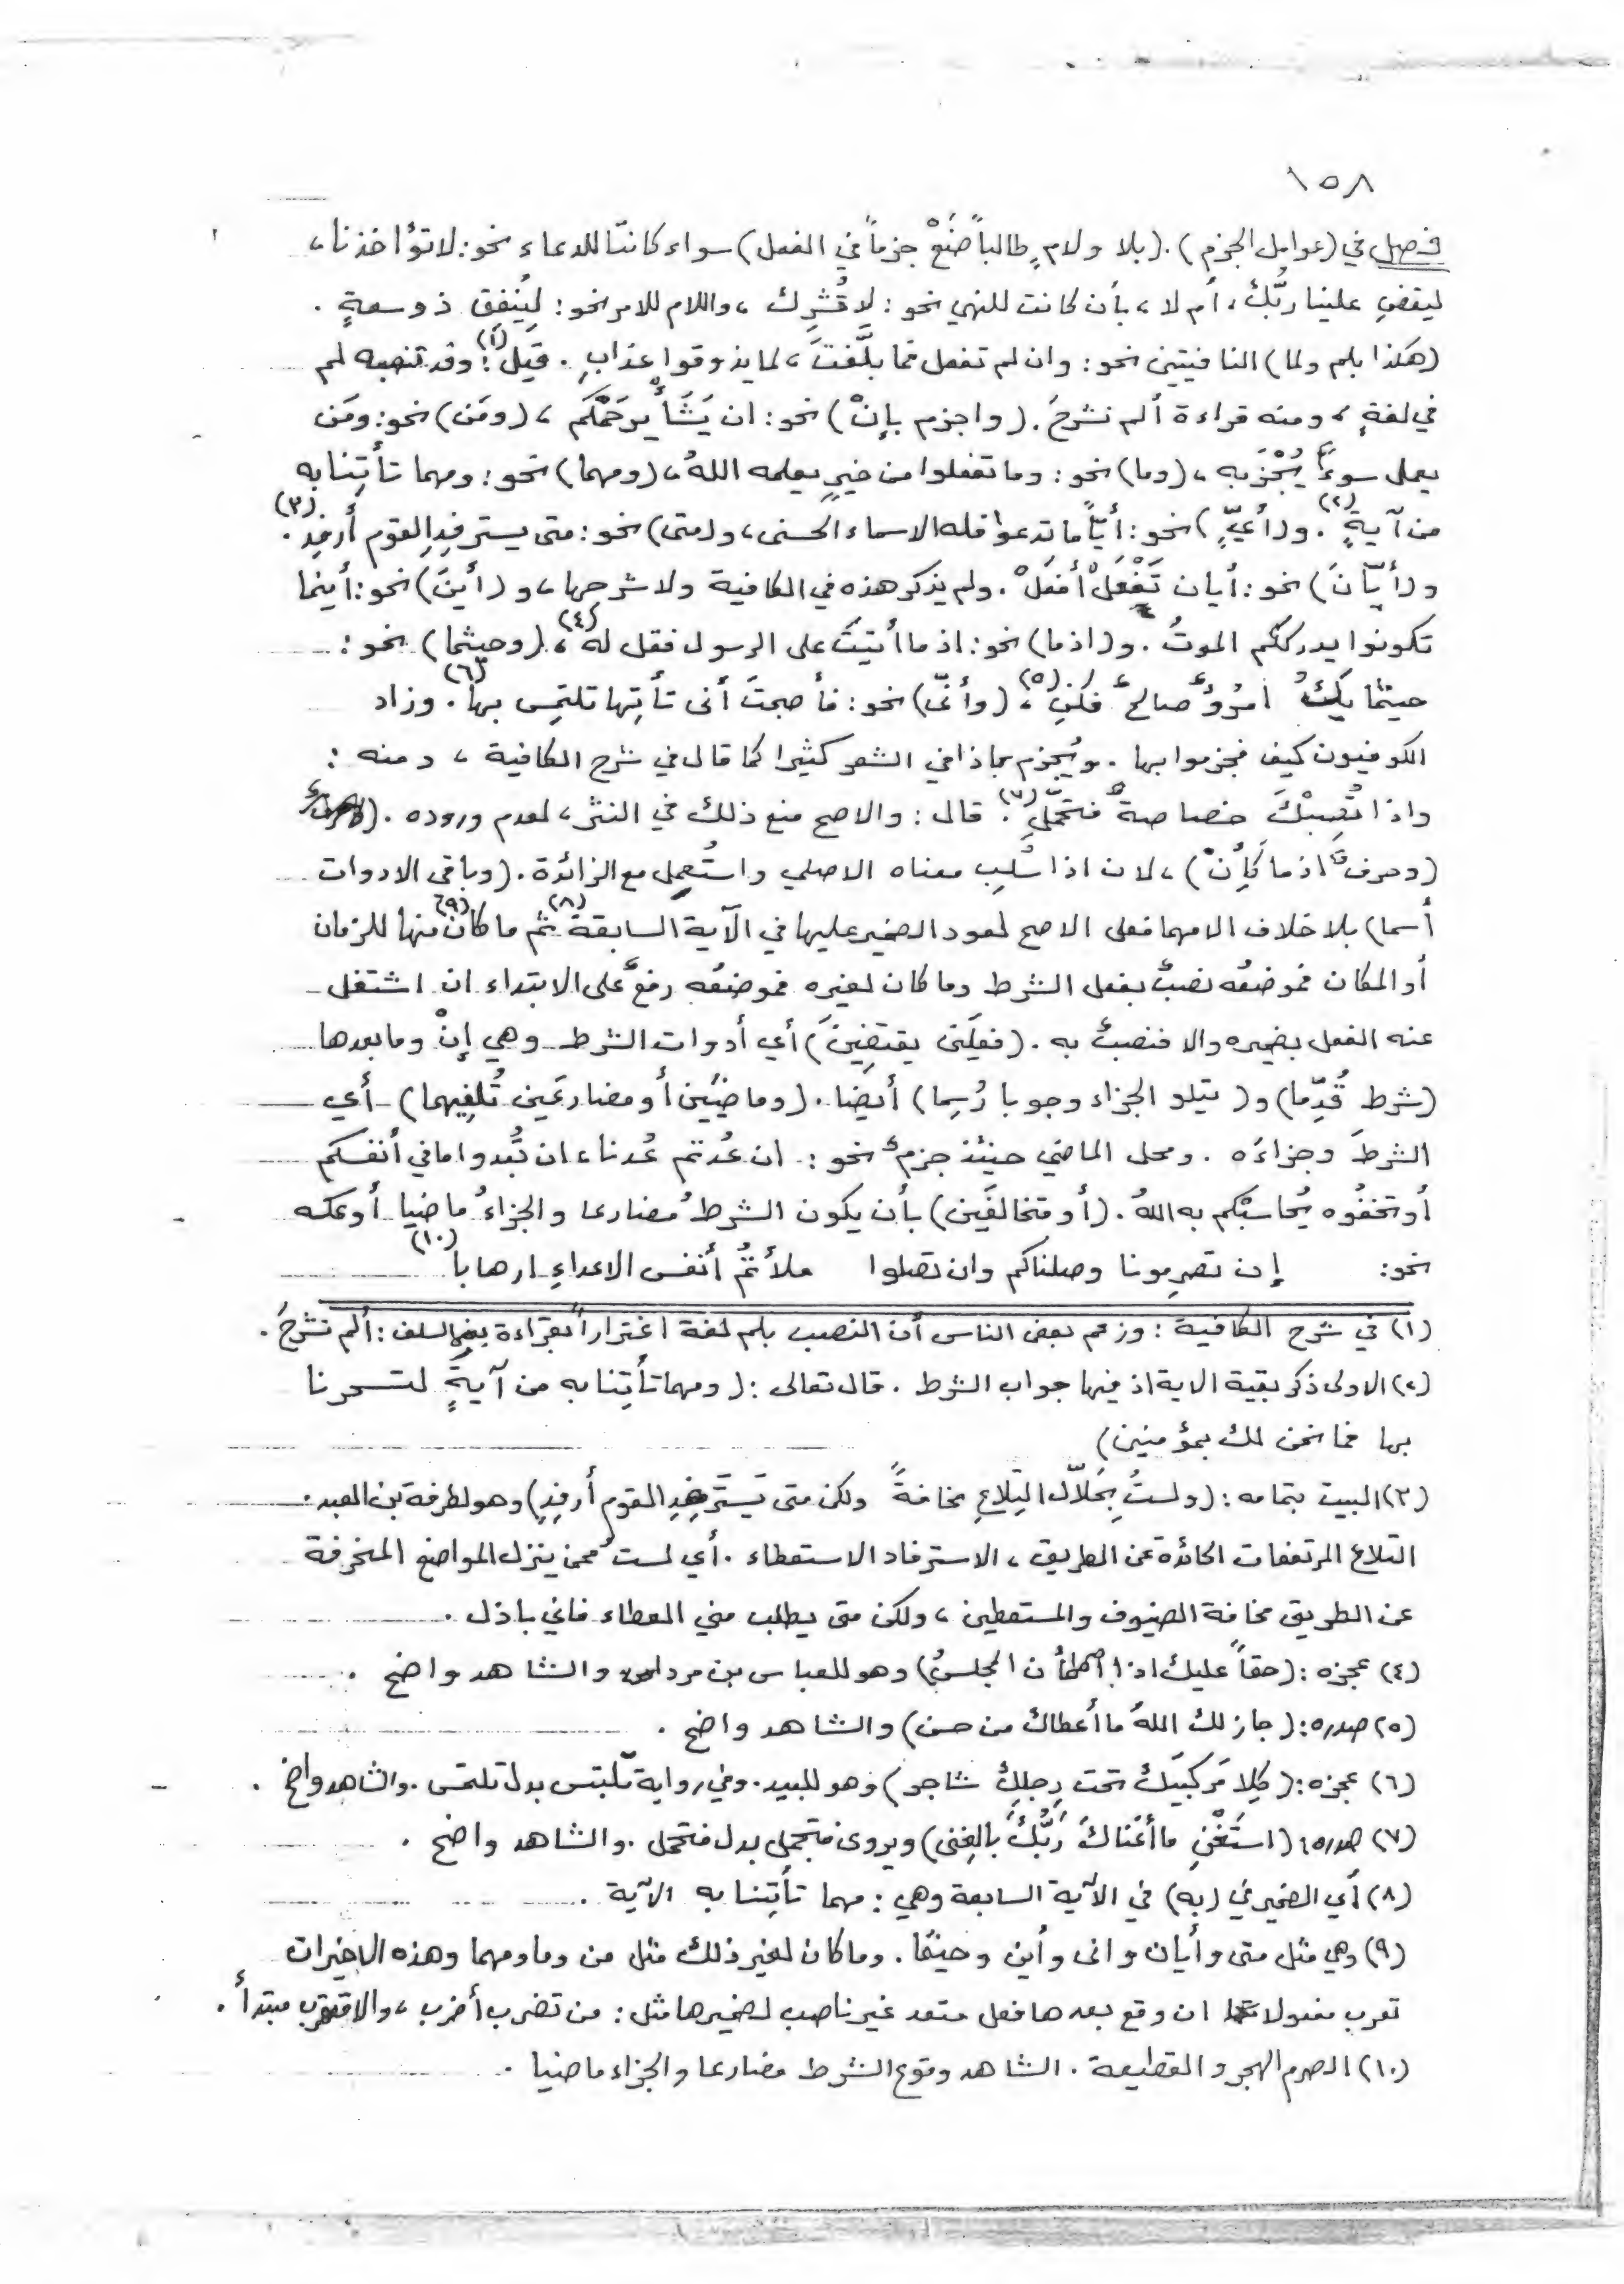 ١٥٨
فصل في (عوامل الجزم). (بلا ولامٍ طالباً ضَعْ جزماً في الفعل) سواء كانتا للدعاء نحو: لا تؤاخذنا،
ليقضِ علينا ربُّك، أم لا، بأن كانت للنهي نحو: لا تُشرِك، واللام للامر نحو: لِيُنفِق ذو سعةٍ.
(هكذا بلم ولما) النافيتين نحو: وان لم تفعل فما بلَّغتَ، لما يذوقوا عذابِ. قيل(١): وقد تنصبه لم
في لغةٍ، ومنه قراءة ألم نشرحَ. (واجزم بإنْ) نحو: ان يَشَأْ يرحَمْكم، (ومَن) نحو: ومَن
يعمل سوءً يُجْزَ به، (وما) نحو: وما تفعلوا من خيرٍ يعلمه اللهُ، (ومهما) نحو: ومهما تأتِنا به
من آيةٍ(٢). و(أيٍّ) نحو: أيّاً ما تدعوا فله الاسماء الحسنى، و(متى) نحو: متى يسترفِدِ القوم أرفِدِ(٣).
و(أيّانَ) نحو: أيان تَفْعَلْ أفعَلْ. ولم يذكر هذه في الكافية ولا شرحها، و(أينَ) نحو: أينما
تكونوا يدرككم الموتُ. و(اذما) نحو: اذ ما أتيتَ على الرسول فقل له(٤)، (وحيثما) نحو:
حيثما يكُ امرُؤٌ صالحٌ فكن(٥)، (وأنّى) نحو: فأصبحتَ أنى تأتِها تلتمِس بها(٦). وزاد
الكوفيون كيف فجزموا بها. ويُجزم باذا في الشعر كثيرا كما قال في شرح الكافية، ومنه:
واذا تُصِبْكَ خصاصةٌ فتحمَّلِ(٧). قال: والاصح منع ذلك في النثر، لعدم وروده.
(وحرفٌ اذ ما كَأِنْ)، لان اذا سُلِب معناه الاصلي واستُعمِل مع الزائدة. (وباقي الادوات
أسما) بلا خلاف الا مهما فعلى الاصح لعود الضمير عليها في الآية السابقة(٨) ثم ما كان(٩) منها للزمان
أو المكان فموضعُه نصبٌ بفعل الشرط وما كان لغيره فموضعُه رفعٌ على الابتداء ان اشتغل
عنه الفعل بضميره والا فنصبٌ به. (فعلَين يقتضِينَ) أي أدوات الشرط وهي إنْ وما بعدها
(شرط قُدِّما) و(يتلو الجزاء وجوبا رُسِما) أيضا. (وماضيَين أو مضارعَين تُلفِيهما) أي
الشرطَ وجزاءَه. ومحل الماضي حينئذ جزمٌ نحو: ان عُدتم عُدنا، ان تُبدوا ما في أنفسكم
أو تخفُوه يُحاسبْكم به اللهُ. (أو متخالفَين) بأن يكون الشرطُ مضارعا والجزاءُ ماضيا أو عكسه
نحو: إن تصرِمونا وصلناكم وان تصلوا ملأتُمُ أنفس الاعداءِ ارهابا(١٠)
(١) في شرح الكافية: وزعم بعض الناس أن النصب بلم لغة اغتراراً بقراءة بعض السلف: ألم نشرحَ.
(٢) الاولى ذكر بقية الاية اذ فيها جواب الشرط. قال تعالى: (ومهما تأتِنا به من آيةٍ لتسحرنا
بها فما نحن لك بمؤمنين)
(٣) البيت بتمامه: (ولستُ بِحَلاّل التِلاعِ مخافةً ولكن متى يَستَرفِدِ القوم أرفِدِ) وهو لطرفة بن العبد.
التلاع المرتفعات الحائدة عن الطريق، الاسترفاد الاستعطاء. أي لست ممن ينزل المواضع المنحرفة
عن الطريق مخافة الضيوف والمستعطين، ولكن متى يطلب مني العطاء فاني باذل.
(٤) عجزه: (حقاً عليك اذا اطمأن المجلسُ) وهو للعباس بن مرداس والشاهد واضح.
(٥) صدره: (جاز لك اللهُ ما أعطاك من حسن) والشاهد واضح.
(٦) عجزه: (كِلا مَركبَيك تحت رِجلِك شاجر) وهو للبيد. وفي رواية تلتبس بدل تلتمس. والشاهد واضح.
(٧) صدره: (استَغْنِ ما أغناكَ رَبُّكَ بالغِنى) ويروى فتجمل بدل فتحمل. والشاهد واضح.
(٨) أي الضمير في (به) في الآية السابعة وهي: مهما تأتِنا به الآية.
(٩) وهي مثل متى وأيان وانى وأين وحيثما. وما كان لغير ذلك مثل من وما ومهما وهذه الاخيرات
تعرب مفعولا ان وقع بعدها فعل متعد غير ناصب لضميرها مثل: من تضرب أضرب، والا فتعرب مبتدأ.
(١٠) الصرم الهجر والقطيعة. الشاهد وقوع الشرط مضارعا والجزاء ماضيا.